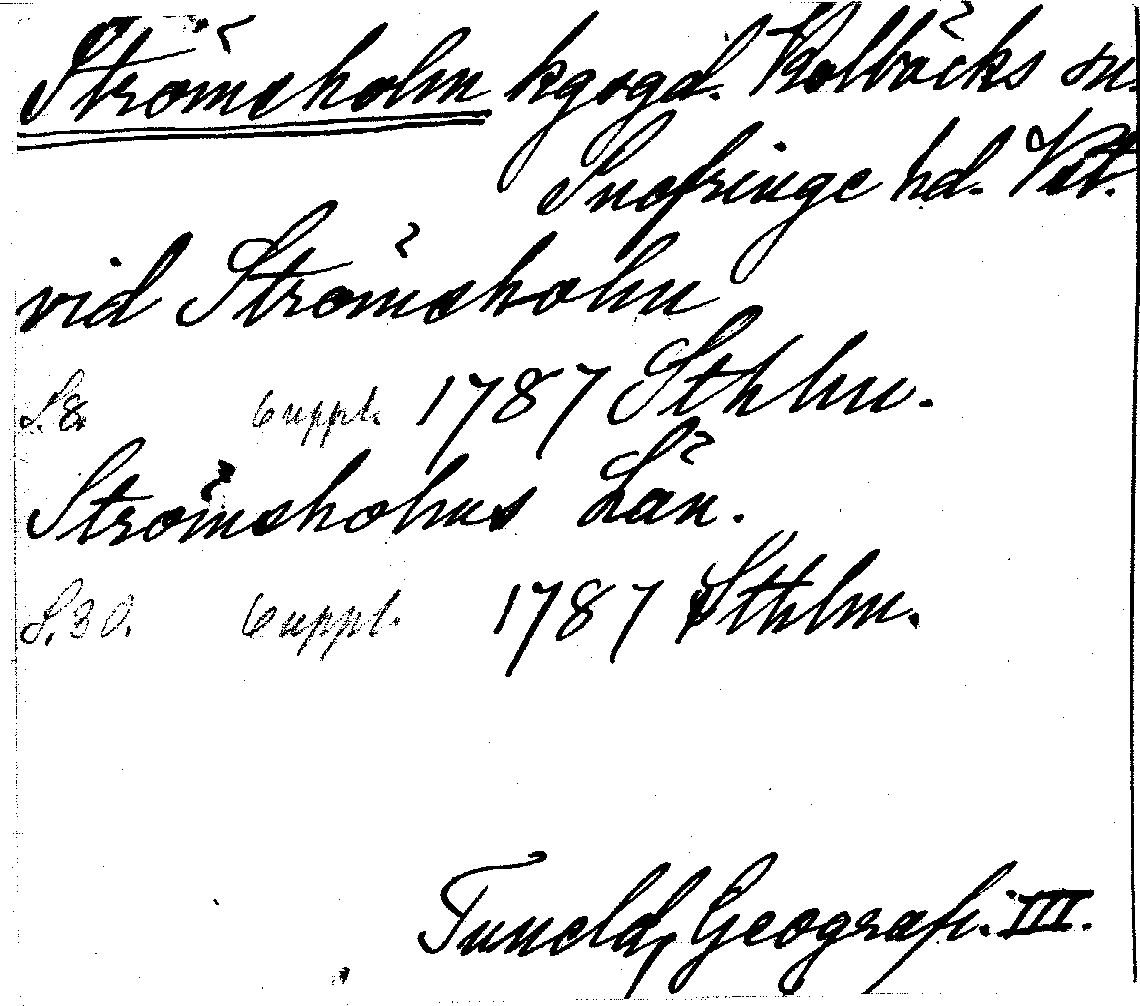 Strömsholm kgsgd. Kolbäcks sn.
Snefringe hd. Vstl.
vid Strömsholm
S.8. 6 uppl. 1787 Sthlm.
Strömsholms Län.
S.30. 6 uppl. 1787 Sthlm.
Tuneld, Geografi. III.